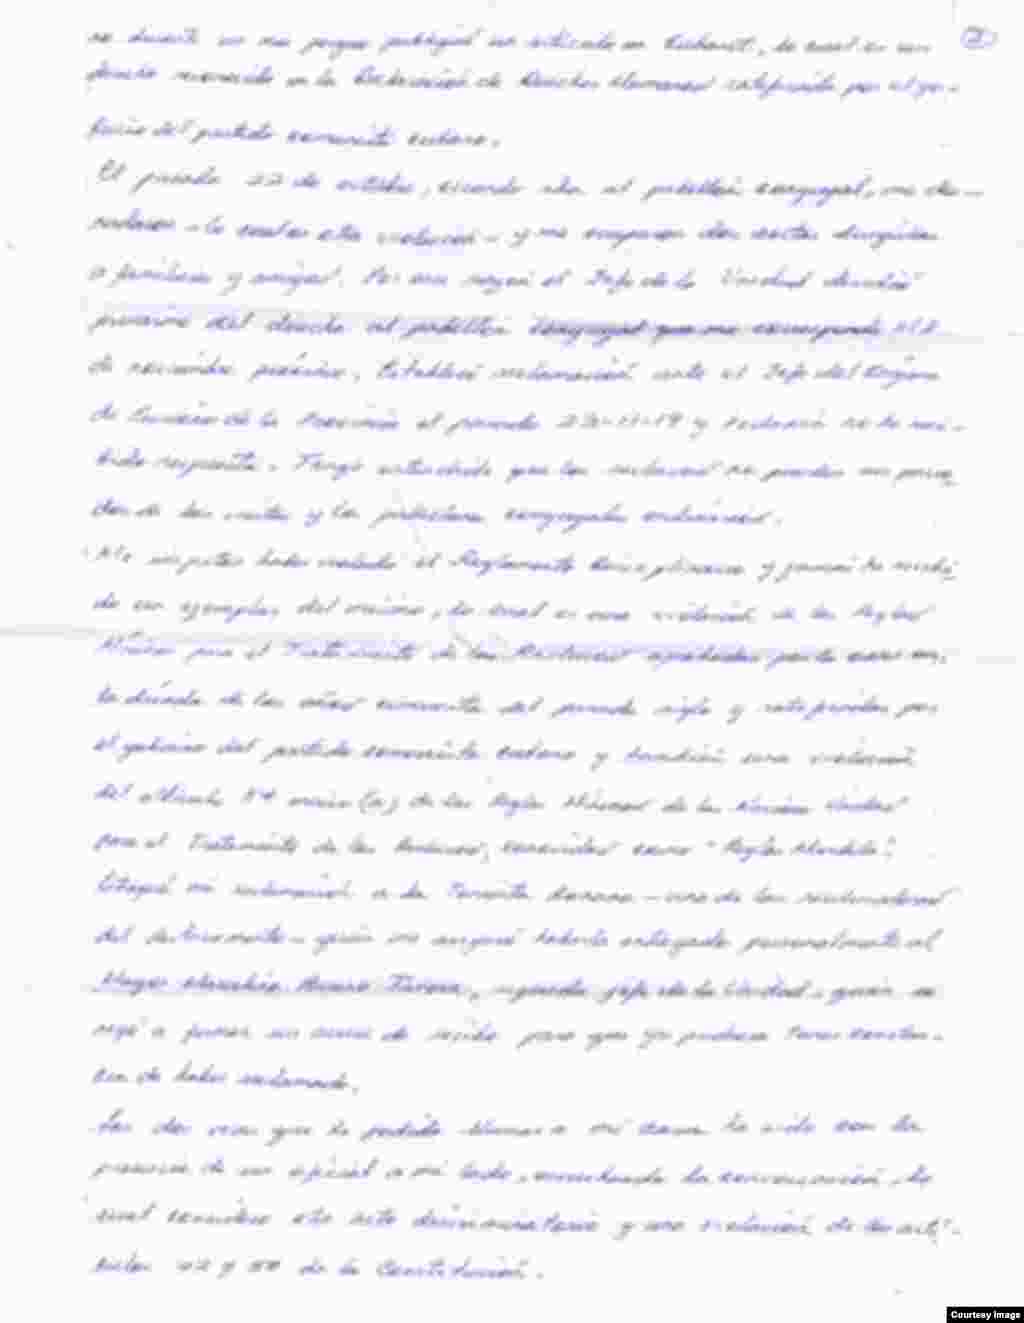 2
un mes porque publiqué un artículo en Cubanet, lo cual es un
derecho reconocido en la Declaración de Derechos Humanos ratificada por el go-
bierno del partido comunista cubano.
El pasado 22 de octubre, cuando iba al pabellón conyugal, me des-
nudaron - lo cual es otra violación - y me ocuparon dos cartas dirigidas
a familiares y amigos. Por esa razón el Jefe de la Unidad decidió
privarme del derecho al pabellón conyugal que me corresponde
de noviembre próximo. Establecí reclamación ante el Jefe del Órgano
de la Provincia el pasado 22-11-19 y todavía no he reci-
bido respuesta. Tengo entendido que los reclusos no pueden ser priva-
dos de las visitas y los pabellones conyugales ordinarios.
Me imputan haber violado el Reglamento Disciplinario y jamás he recibi-
do un ejemplar del mismo, lo cual es una violación de las Reglas
Mínimas para el Tratamiento de los Reclusos aprobadas por la ONU en
la década de los años cincuenta del pasado siglo y ratificadas por
el gobierno del partido comunista cubano y también una violación
del artículo 54 inciso (a) de las Reglas Mínimas de las Naciones Unidas
para el Tratamiento de los Reclusos, conocidas como "Reglas Mandela".
Entregué mi reclamación a la - una de las reeducadoras
del destacamento - quien me aseguró haberla entregado personalmente al
Mayor segundo jefe de la Unidad, quien se
negó a firmar un acuse de recibo para que yo pudiera tener constan-
cia de haber reclamado.
Las dos veces que he podido llamar a mi casa ha sido con la
presencia de un oficial a mi lado, escuchando la conversación, lo
cual considero otro acto discriminatorio y una violación de los artí-
culos 42 y 50 de la Constitución.
Courtesy Image